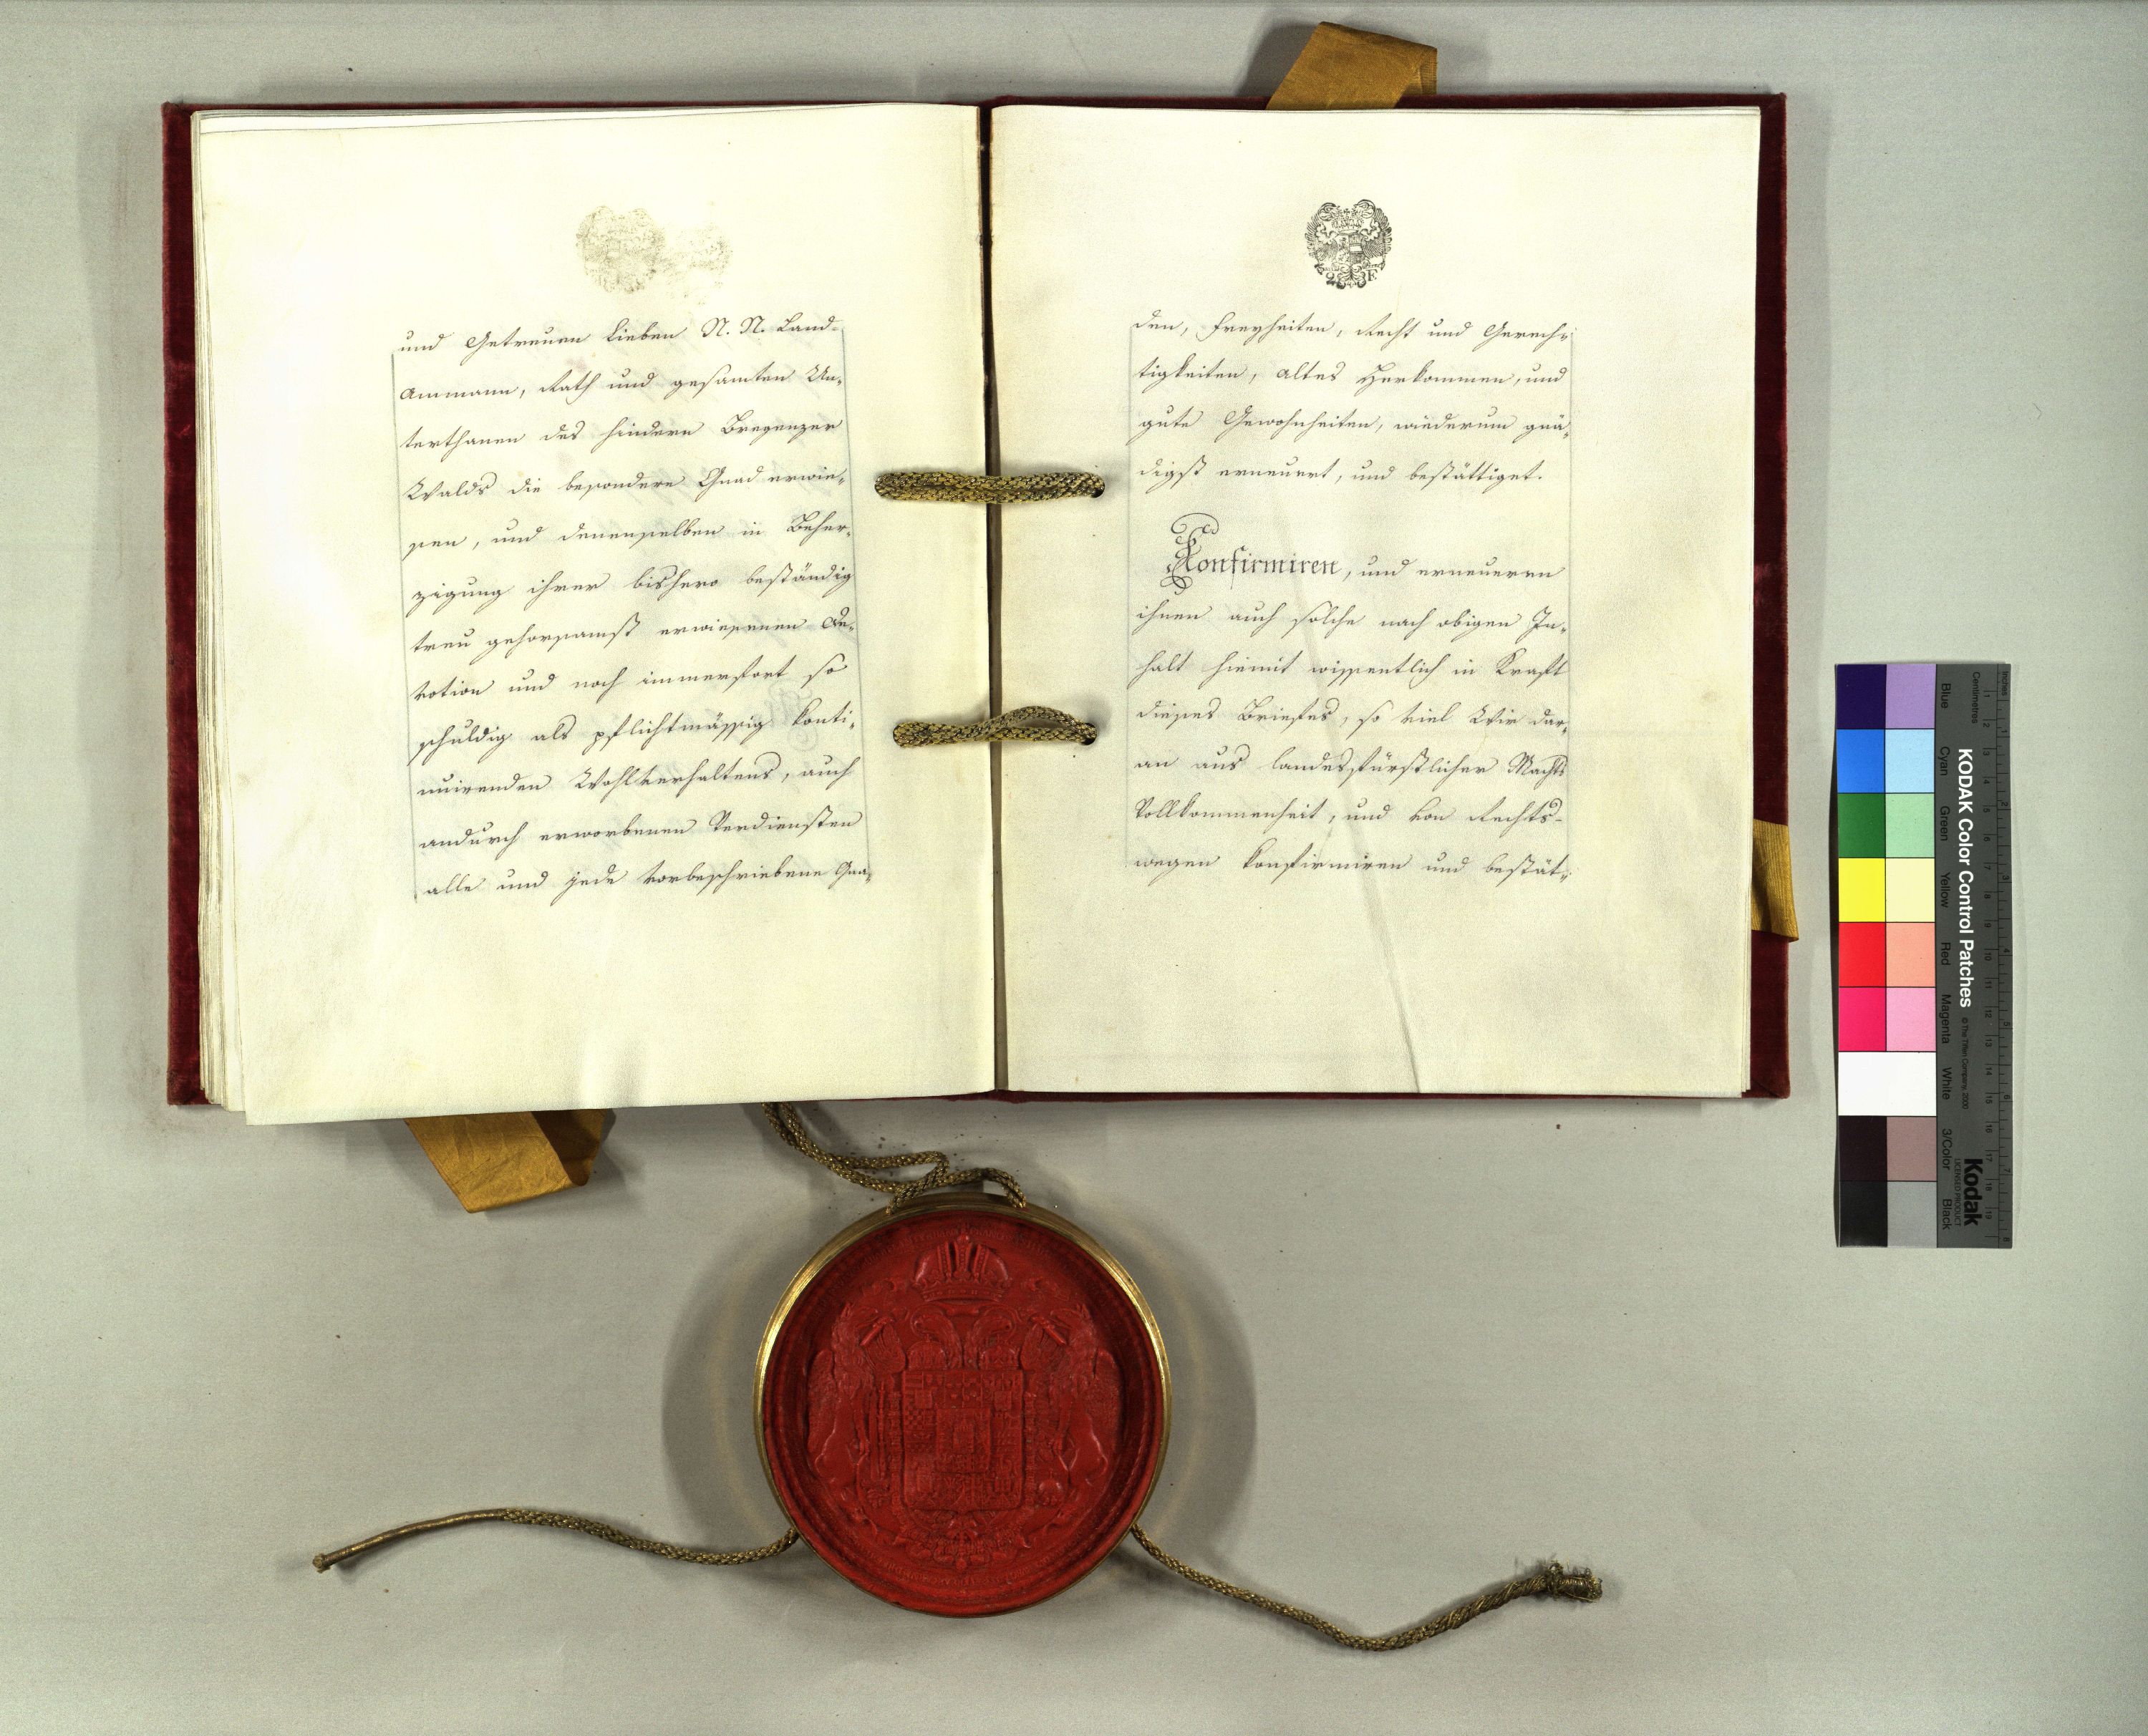 und Getreuen lieben N. N. Land-
ammann, Rath und gesamten Un-
terthanen des hindern Bregenzer
Walds die besondere Gnad erwie-
sen, und denenselben in Beher-
zigung ihrer bishero beständig
treu gehorsamst erwiesenen De-
votion und noch immerfort so
schuldig als pflichtmässig konti-
nuirenden Wohlverhaltens, auch
andurch erworbenen Verdiensten
alle und jede vorbeschriebene Gna-
den, Freyheiten, Recht und Gerech-
tigkeiten, altes Herkommen, und
gute Gewohnheiten, wiederum gnä-
digst erneuert, und bestättiget.
Konfirmiren, und erneueren
ihnen auch solche nach obigen In-
halt hiemit wissentlich in Kraft
dieses Briefes, so viel Wir dar-
an aus landesfürstlicher Machts
Vollkommenheit, und von Rechts-
wegen konfirmiren und bestät-
KODAK Color Control Patches
© The Tiffen Company, 2000
Kodak
LICENSED PRODUCT
Blue Cyan Green Yellow Red Magenta White 3/Color Black
Inches
Centimetres